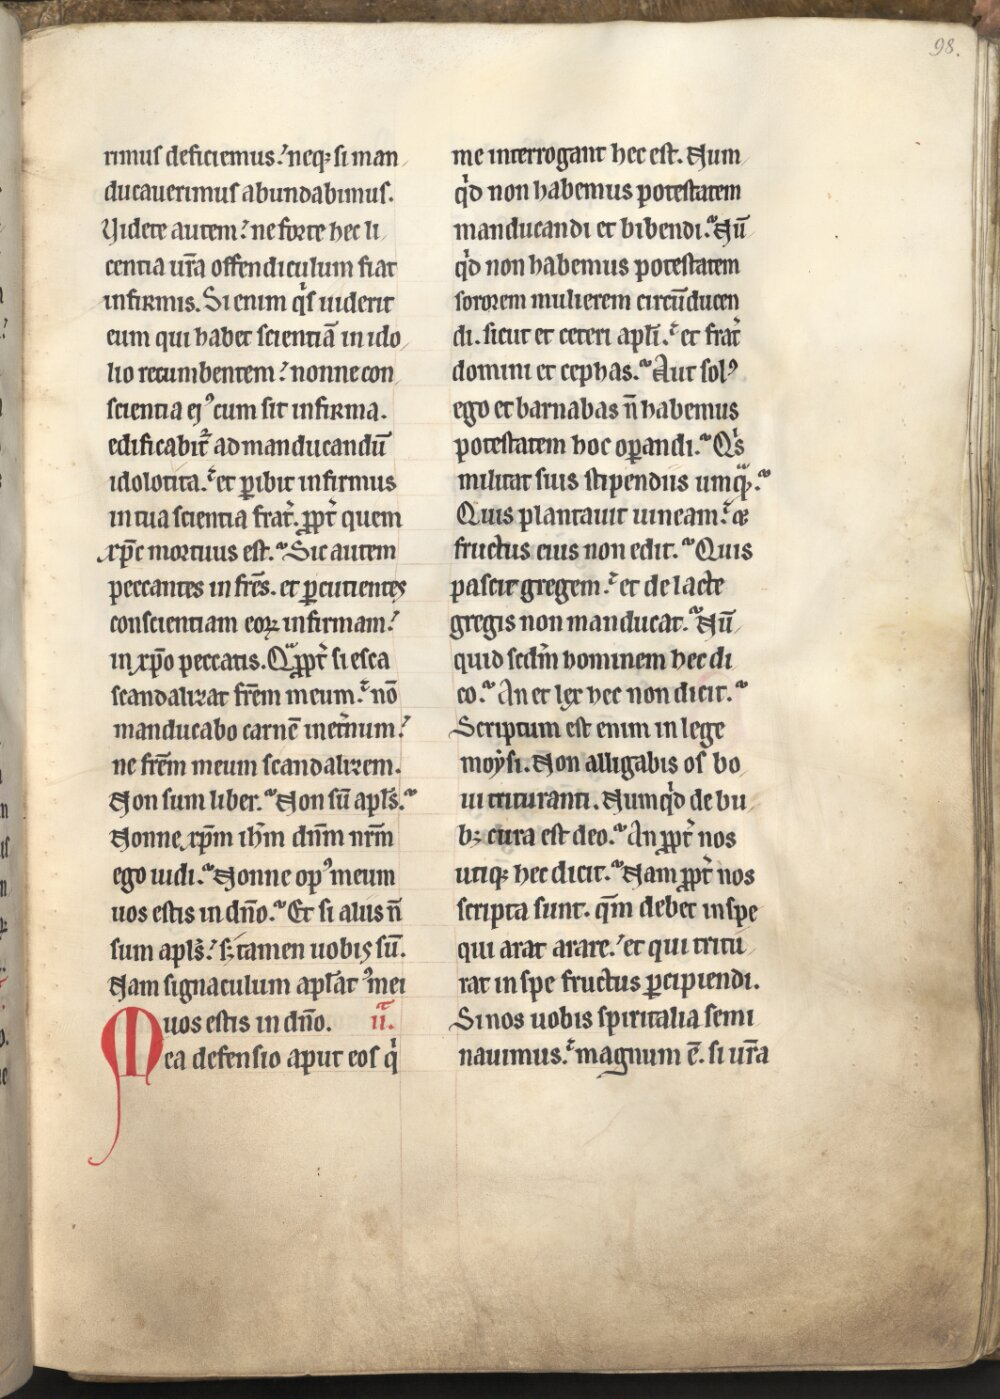 98.
rimus deficiemus. neq; si man
ducauerimus abundabimus.
Videte autem: ne forte hec li
centia ur̄a offendiculum fiat
infirmis. Si enim qͥs uiderit
eum qui habet scientiā in ido
lio recumbentem: nonne con
scientia ejꝰ cum sit infirma.
edificabit᷑ ad manducandū
idolotita. et ꝑibit infirmus
in tua scientia frat̄. ꝓpt̄ quem
xp̄c mortuus est. Sic autem
peccantes in fr̄es. et ꝑcutientes
conscientiam eoꝝ infirmam:
in xp̄o peccatis. Qͣꝓpt̄ si esca
scandalizat fr̄em meum. nō
manducabo carnē inet̄num:
ne fr̄em meum scandalizem.
Non sum liber. Non sū apl̄s.
Nonne xp̄m ih̄m dn̄m nr̄m
ego uidi. Nonne opꝰ meum
uos estis in dn̄o. Et si aliis n̄
sum apl̄s: s; tamen uobis sū.
Nam signaculum apl̄atꝰ mei
uos estis in dn̄o. ii.
Mea defensio aput eos qͥ
me interrogant hec est. Num
qͥd non habemus potestatem
manducandi et bibendi. Nū
qͥd non habemus potestatem
sororem mulierem circūducen
di. sicut et ceteri apl̄i. et frat̄
domini et cephas. Aut solꝰ
ego et barnabas n̄ habemus
potestatem hoc oꝑandi. Qͥs
militat suis stipendiis umqͣꝫ.
Quis plantauit uineam: &
fructus eius non edit. Quis
pascit gregem. et de lacte
gregis non manducat. Nū
quid scd̄m hominem hec di
co. An et lex hec non dicit.
Scriptum est enim in lege
moẏsi. Non alligabis os bo
ui trituranti. Numqͥd de bu
b; cura est deo. An ꝓpt̄ nos
utiq; hec dicit. Nam ꝓpt̄ nos
scripta sunt. qm̄ debet in spe
qui arat arare. et qui tritu
rat in spe fructus ꝑcipiendi.
Si nos uobis spiritalia semi
nauimus. magnum ē. si ur̄a